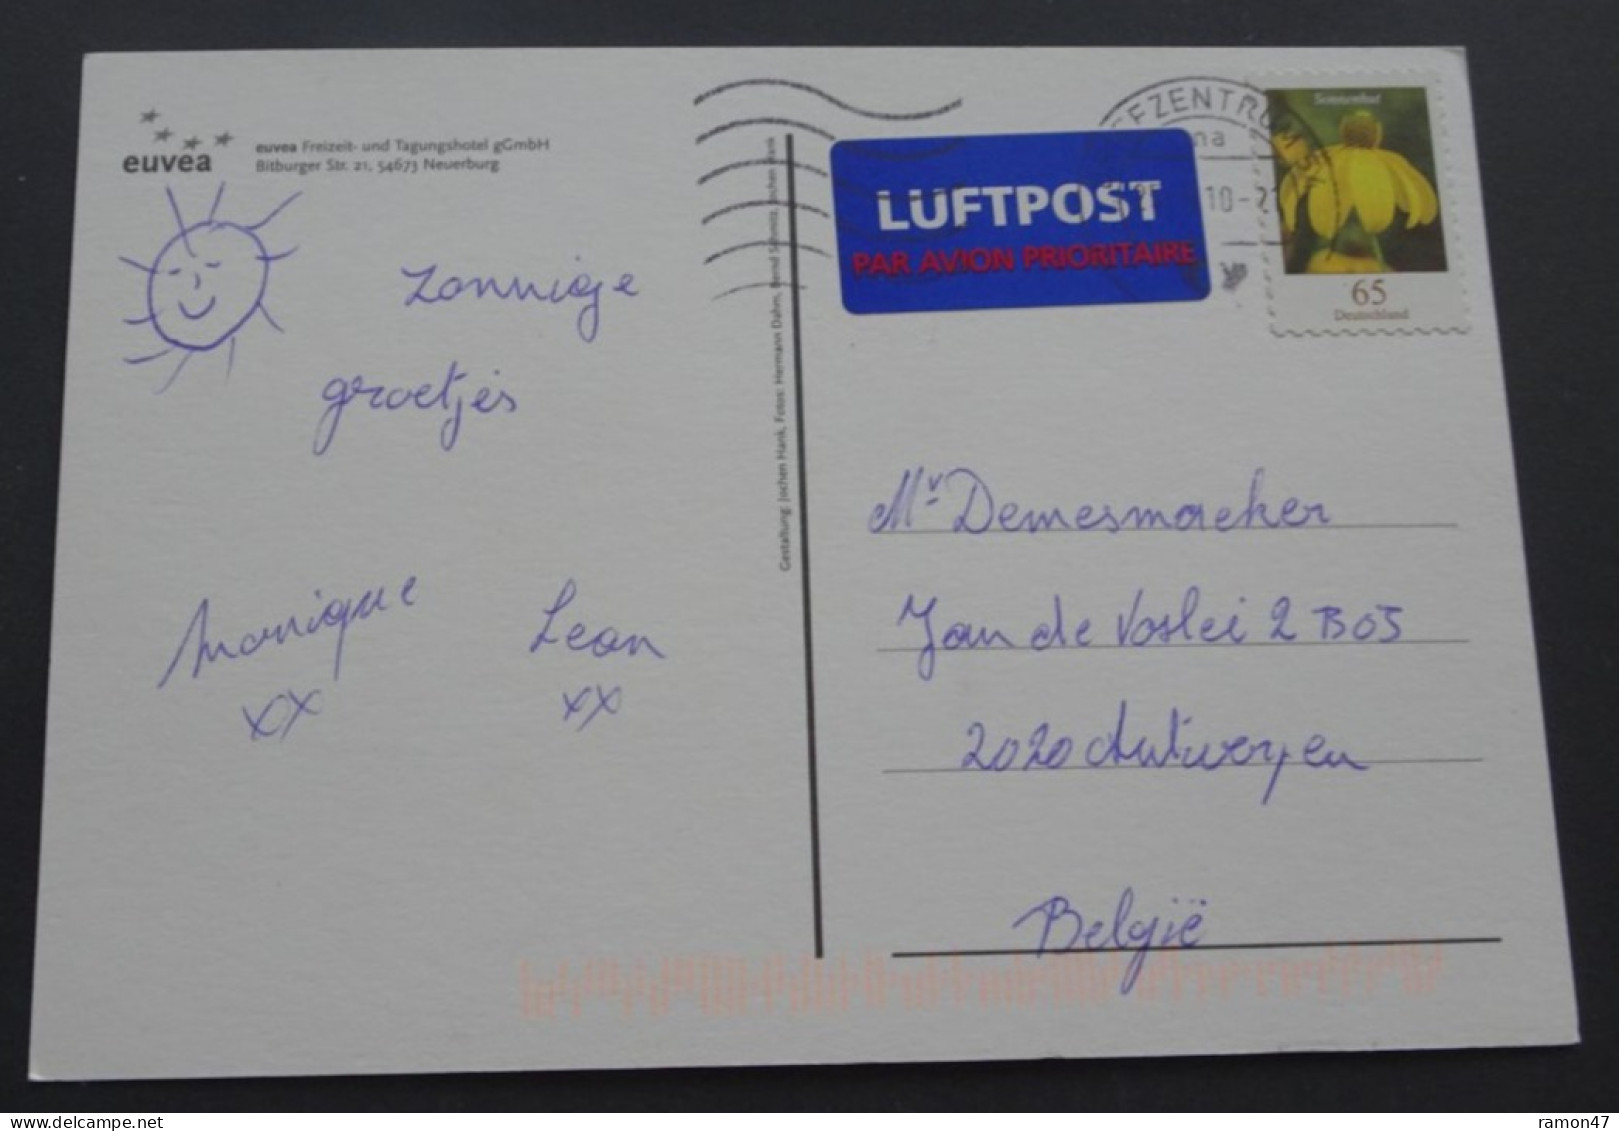 euvea
euvea Freizeit- und Tagungshotel gGmbH
Bitburger Str. 21, 54673 Neuerburg
zonnige
groetjes
Monique
xx
Lean
xx
Gestaltung: Jochen Hank, Fotos: Hermann Dahm, Bernd Schmitz, Jochen Hank
LUFTPOST
PAR AVION PRIORITAIRE
10-21
Sonnenhut
65
Deutschland
Mr Demesmaeker
Jan de Voslei 2 B05
2020 Antwerpen
België
ramon47